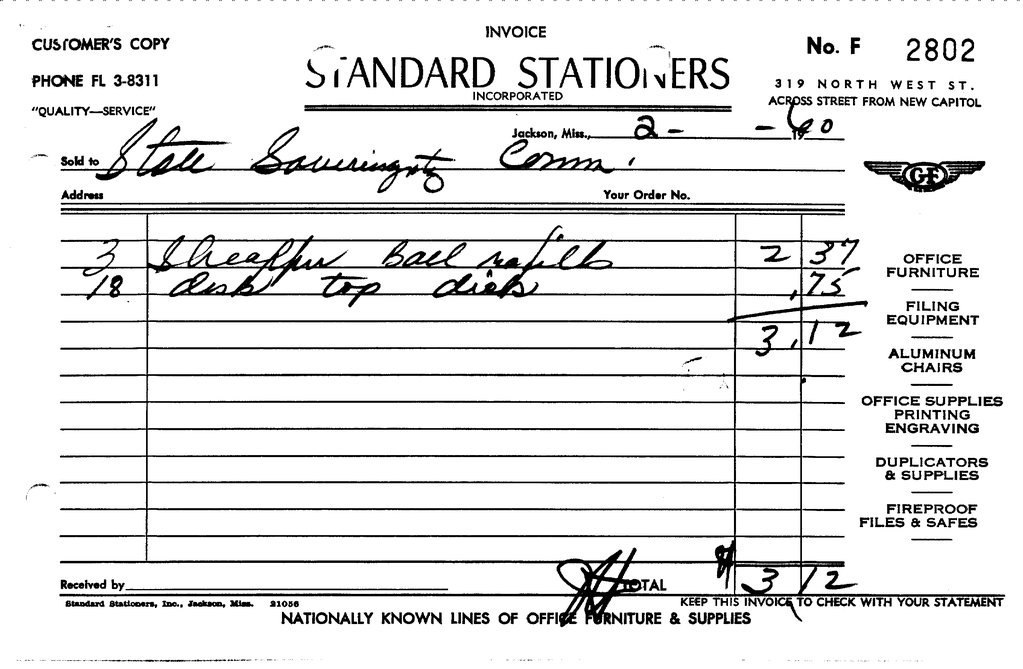 INVOICE
CUSTOMER'S COPY
No. F 2802
PHONE FL 3-8311
STANDARD STATIONERS
INCORPORATED
319 NORTH WEST ST.
ACROSS STREET FROM NEW CAPITOL
"QUALITY—SERVICE"
Jackson, Miss., 2- - 1960
Sold to State Soveringty Comm.
GF
Address Your Order No.
3 Sheaffer Ball refills 2 37
18 desk top disk .75
3.12
OFFICE
FURNITURE
FILING
EQUIPMENT
ALUMINUM
CHAIRS
OFFICE SUPPLIES
PRINTING
ENGRAVING
DUPLICATORS
& SUPPLIES
FIREPROOF
FILES & SAFES
Received by TOTAL 3 12
Standard Stationers, Inc., Jackson, Miss. 21056
KEEP THIS INVOICE TO CHECK WITH YOUR STATEMENT
NATIONALLY KNOWN LINES OF OFFICE FURNITURE & SUPPLIES